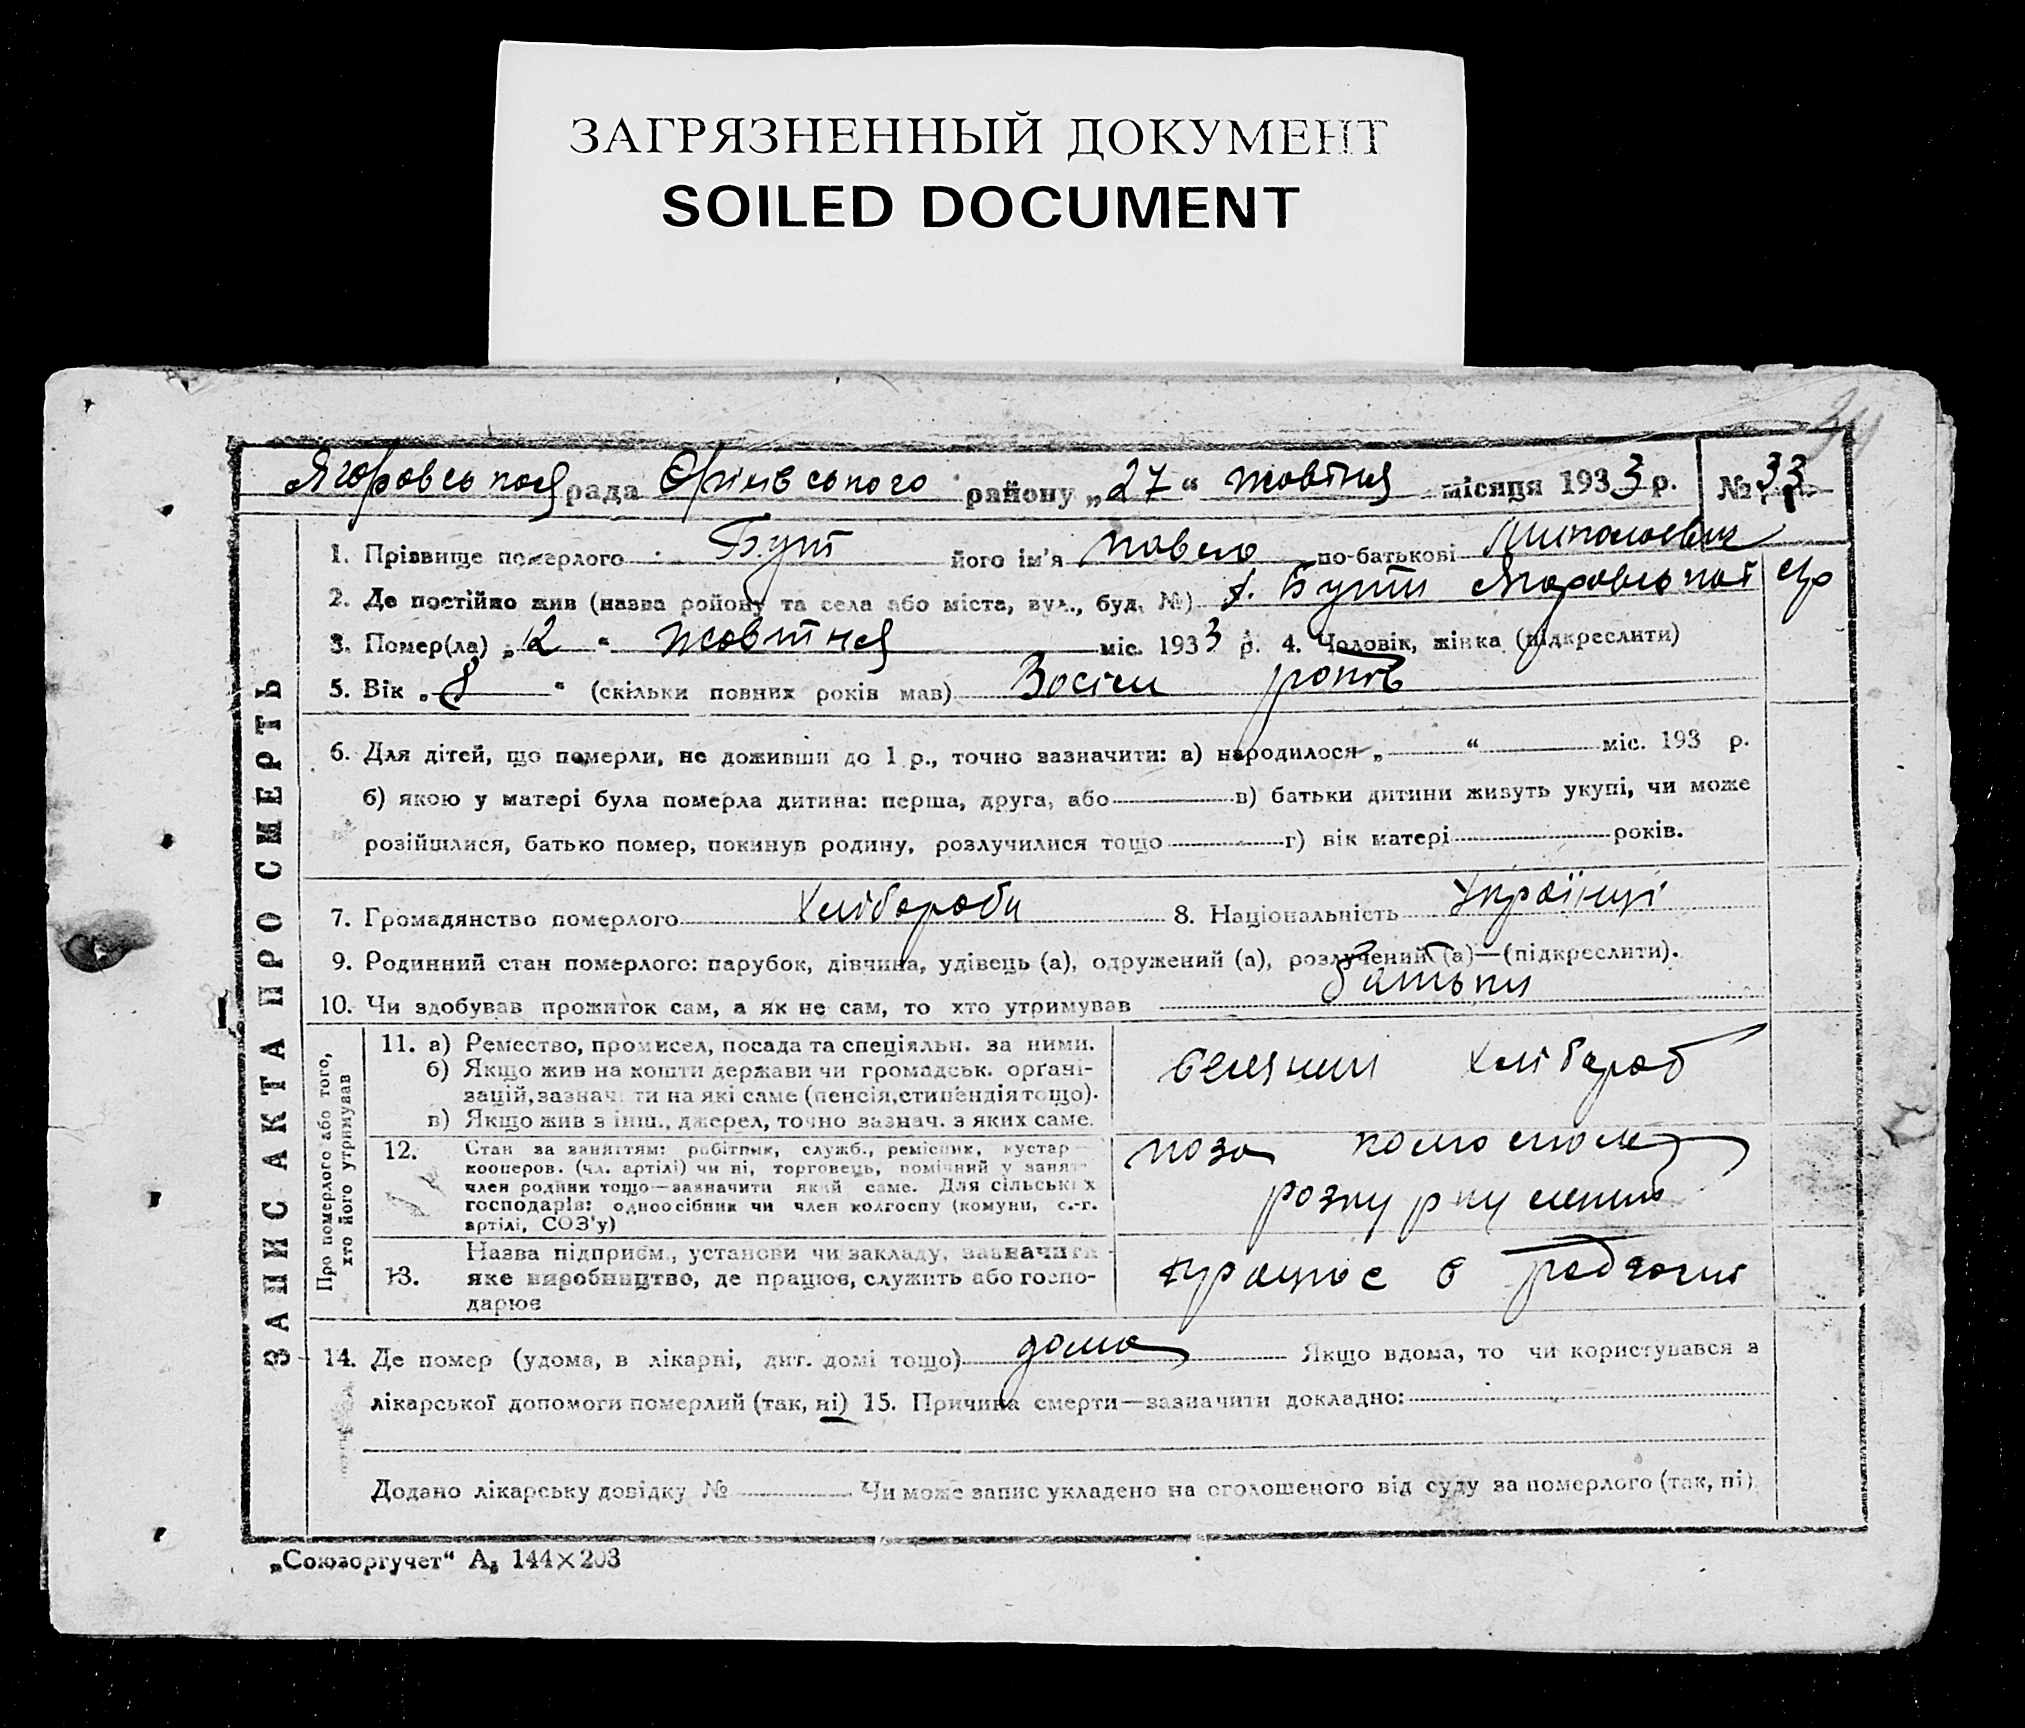 ЗАГРЯЗНЕННЫЙ ДОКУМЕНТ
SOILED DOCUMENT
рада району „27“ жовтня місяця 1933 р. № 33
1. Прізвище померлого Бут його ім'я Павело по-батькові
2. Де постійно жив (назва району та села або міста, вул., буд. №) х. Бути
3. Помер(ла) „12“ жовтня міс. 1933 р. 4. Чоловік, жінка (підкреслити)
5. Вік „8“ (скільки повних років мав) Восім років
6. Для дітей, що померли, не доживши до 1 р., точно зазначити: а) народилося „ “ міс. 193 р.
б) якою у матері була померла дитина: перша, друга, або в) батьки дитини живуть укупі, чи може
розійшлися, батько помер, покинув родину, розлучилися тощо г) вік матері років.
7. Громадянство померлого Хлібороби 8. Національність Українці
9. Родинний стан померлого: парубок, дівчина, удівець (а), одружений (а), розлучений (а)—(підкреслити).
10. Чи здобував прожиток сам, а як не сам, то хто утримував батьки
ЗАПИС АКТА ПРО СМЕРТЬ
Про померлого або того, хто його утримував
11. а) Ремество, промисел, посада та спеціяльн. за ними.
б) Якщо жив на кошти держави чи громадськ. орґані-
зацій, зазначити на які саме (пенсія, стипендія тощо).
в) Якщо жив з інш., джерел, точно зазнач. з яких саме.
селянин хлібороб
12. Стан за заняттям: робітник, служб., ремісник, кустар—
кооперов. (чл. артілі) чи ні, торговець, помічний у занят.
член родини тощо—зазначити який саме. Для сільських
господарів: одноосібник чи член колгоспу (комуни, с.-г.
артілі, СОЗ'у)
поза
13. Назва підприєм., установи чи закладу, зазначити
яке виробництво, де працює, служить або госпо-
дарює
працює в радгоспі
14. Де помер (удома, в лікарні, дит. домі тощо) дома Якщо вдома, то чи користувався з
лікарської допомоги померлий (так, ні) 15. Причина смерти—зазначити докладно:
Додано лікарську довідку № Чи може запис укладено на оголошеного від суду за померлого (так, ні)
„Союзоргучет“ А₅ 144×203